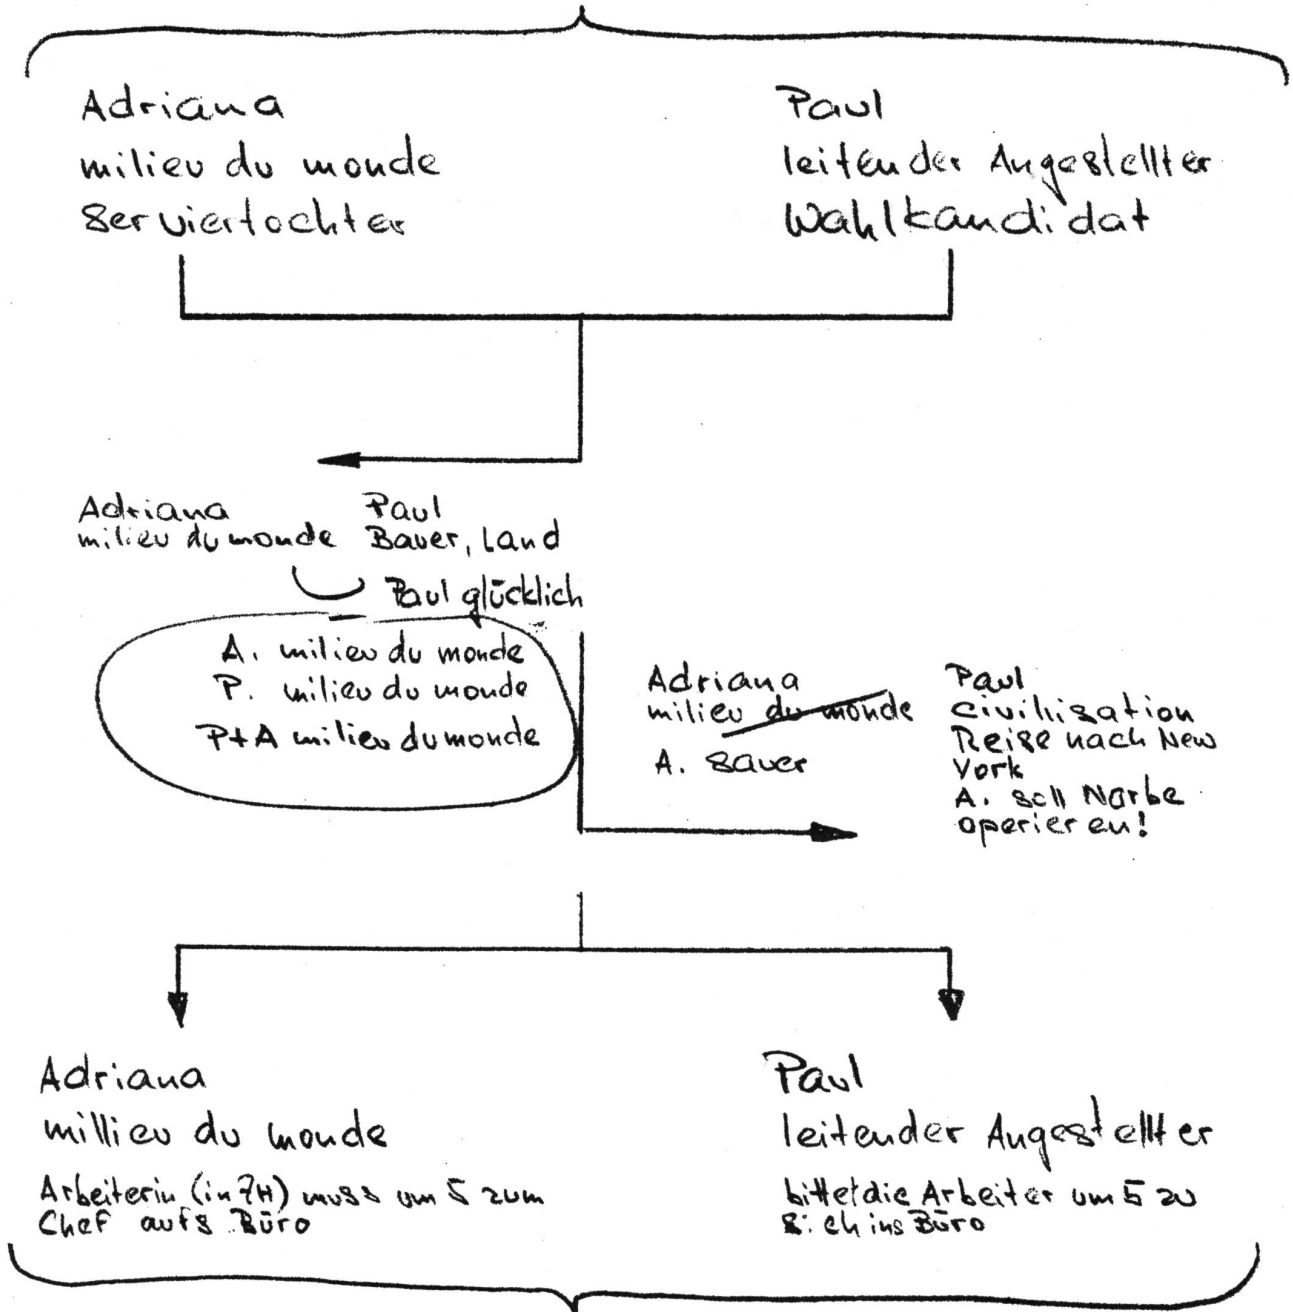 Adriana
milieu du monde
Serviertochter
Paul
leitender Angestellter
Wahlkandidat
Adriana
milieu du monde
Paul
Bauer, Land
Paul glücklich
A. milieu du monde
P. milieu du monde
P+A milieu du monde
Adriana
milieu du monde
A. sauer
Paul
civilisation
Reise nach New
York
A. soll Narbe
operieren!
Adriana
millieu du monde
Arbeiterin (in ZH) muss um 5 zum
Chef aufs Büro
Paul
leitender Angestellter
bittet die Arbeiter um 5 zu
sich ins Büro